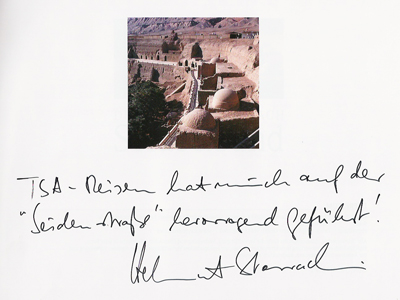 TSA-Reisen hat mich auf der
"Seidenstraße" hervorragend geführt!
Helmut